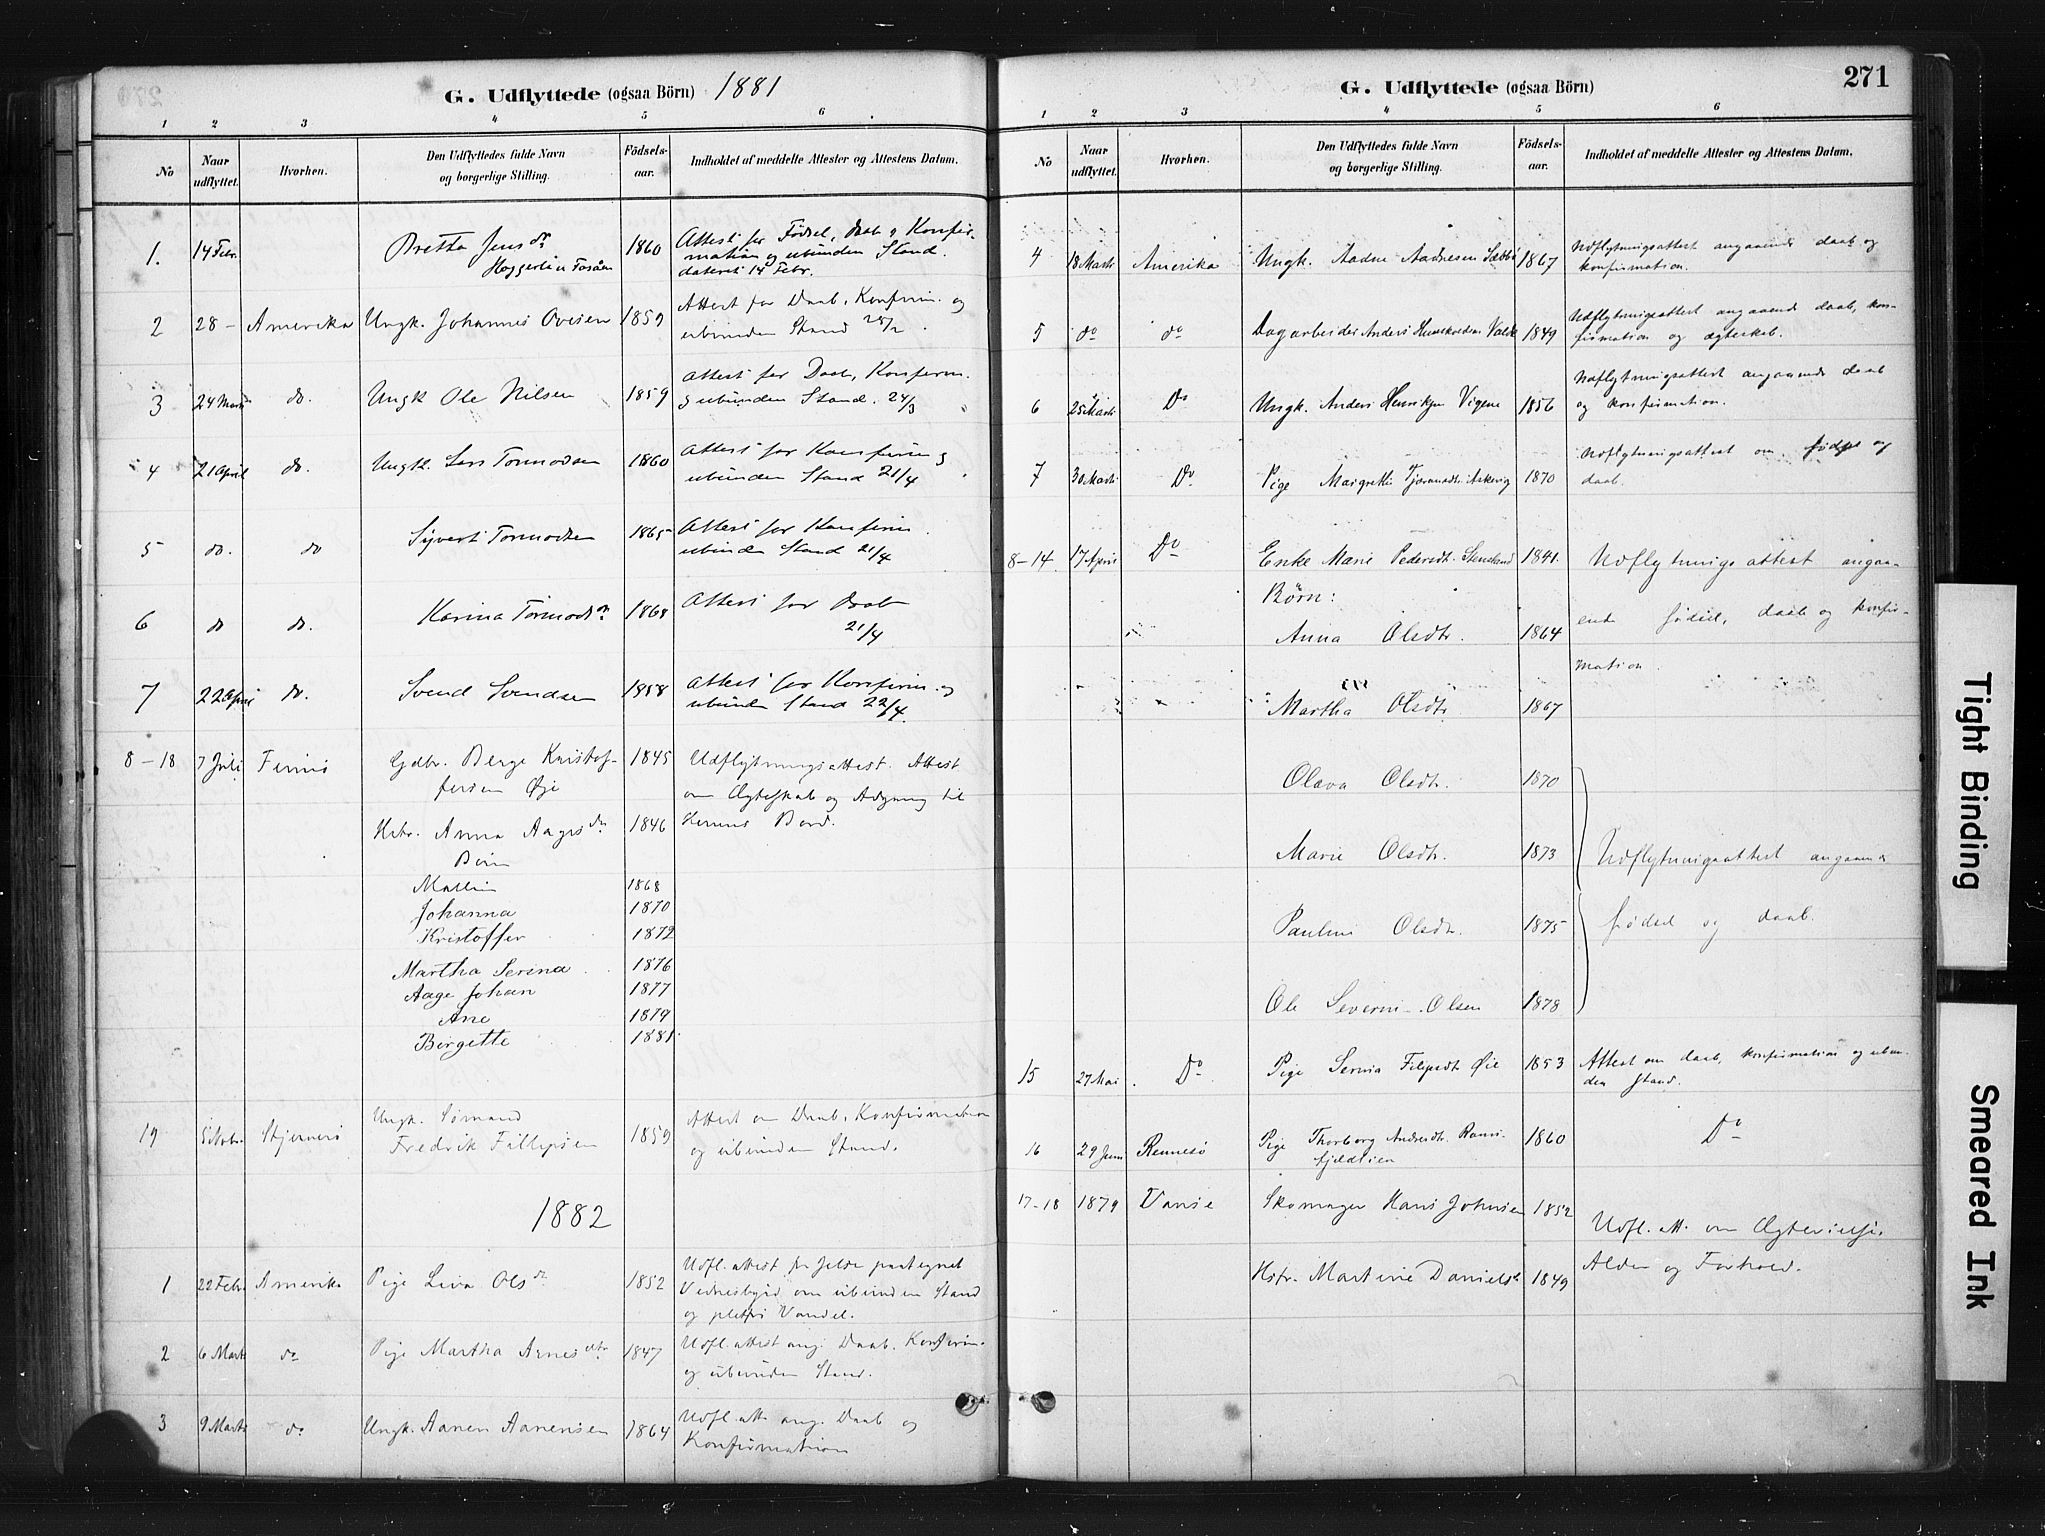 G. Udflyttede (ogsaa Börn) 1881
1 2 3 4 5 6
No
Naar udflyttet.
Hvorhen.
Den Udflyttedes fulde Navn og borgerlige Stilling.
Födsels-aar.
Indholdet af meddelte Attester og Attestens Datum.
1. 14 Febr. Jensdr 1860 Attest for Fødsel, Daab og Konfir-
mation og ubunden Stand.
dateret 14 Febr.
2 28 - Amerika Ungk. Johannes Ovesen 1859 Attest for Daab, Konfirm. og
ubunden Stand 28/2.
3 24 Marts do. Ungk Ole Nilsen 1859 Attest for Daab, Konfirm.
og ubunden Stand. 24/3
4 21 April do. Ungk. Lars Tormodsen 1860 Attest for Konfirm og
ubunden Stand 21/4
5 do. do Sivert Tormodsen 1865 Attest for Konfirm
ubunden Stand 21/4
6 do do. Karina Tormodsdr 1868 Attest for Daab
21/4
7 22 April do. Svend Svendsen 1858 Attest for Konfirm. og
ubunden Stand 22/4.
8-18 7 Juli Finnø Gdbr. Berge Kristof- 1845 Udflytningsattest. Attest
fersen Øie om Ægteskab og Adgang til
Hstr. Anna Aagesdr 1846 Herrens Bord.
Børn
1868
Johanna 1870
Kristoffer 1872
Martha Serina 1876
Aage Johan 1877
Ane 1879
Birgitte 1881
19 Stjernerø Ungk. Sømand
Fredrik Fillipsen 1859 Attest om Daab, Konfirmation
og ubunden Stand.
1882
1 22 Febr. Amerika Pige Liva Olsdr 1852 Udfl. attest
om ubunden Stand
og Vandel.
2 6 Marts do Pige Martha Arnesdtr 1847 Udfl. attest ang. Daab, Konfirm.
og ubunden Stand.
3 9 Marts do Ungk. Aanen Aanensen 1864 Udfl. att. ang. Daab og
Konfirmation
G. Udflyttede (ogsaa Börn)
271
1 2 3 4 5 6
No
Naar udflyttet.
Hvorhen.
Den Udflyttedes fulde Navn og borgerlige Stilling.
Födsels-aar.
Indholdet af meddelte Attester og Attestens Datum.
4 18 Marts Amerika Ungk. Aadne Aadnesen Sæbbø 1867 Udflytningsattest angaaende daab og
konfirmation.
5 do do Dagarbeider Anders 1849 Udflytningsattest angaaende daab, kon-
firmation og ægteskab.
6 25 Marts Do Ungk. Anders Henriksen Vigene 1856 Udflytningsattest angaaende daab
og konfirmation.
7 30 Marts Do Pige Margrethe 1870 Udflytningsattest om fødsel og
daab.
8-14. 17 April Do Enke Marie Pedersdt. Stensland 1841. Udflytningsattest angaa-
Børn:
Anna Olsdtr. 1864 ende fødsel, daab og konfir-
mation.
Martha Olsdtr. 1867
Olava Olsdtr. 1870
Marie Olsdtr. 1873 Udflytningsattest angaaende
Pauline Olsdtr. 1875 fødsel og daab.
Ole Severin Olsen 1878
15 27 Mai Do Pige Serina Filipsdt. Øie 1853 Attest om daab, konfirmation og ubun-
den stand.
16 29 Juni Rennesø Pige Thorborg Andresdt. 1860 Do
17-18 1879 Vanse Skomager Hans Johnsen 1852
Udfl. att. om Ægtevielse,
Hstr. Martine Danielsdr 1849 Alder og Forhold.
Tight Binding
Smeared Ink